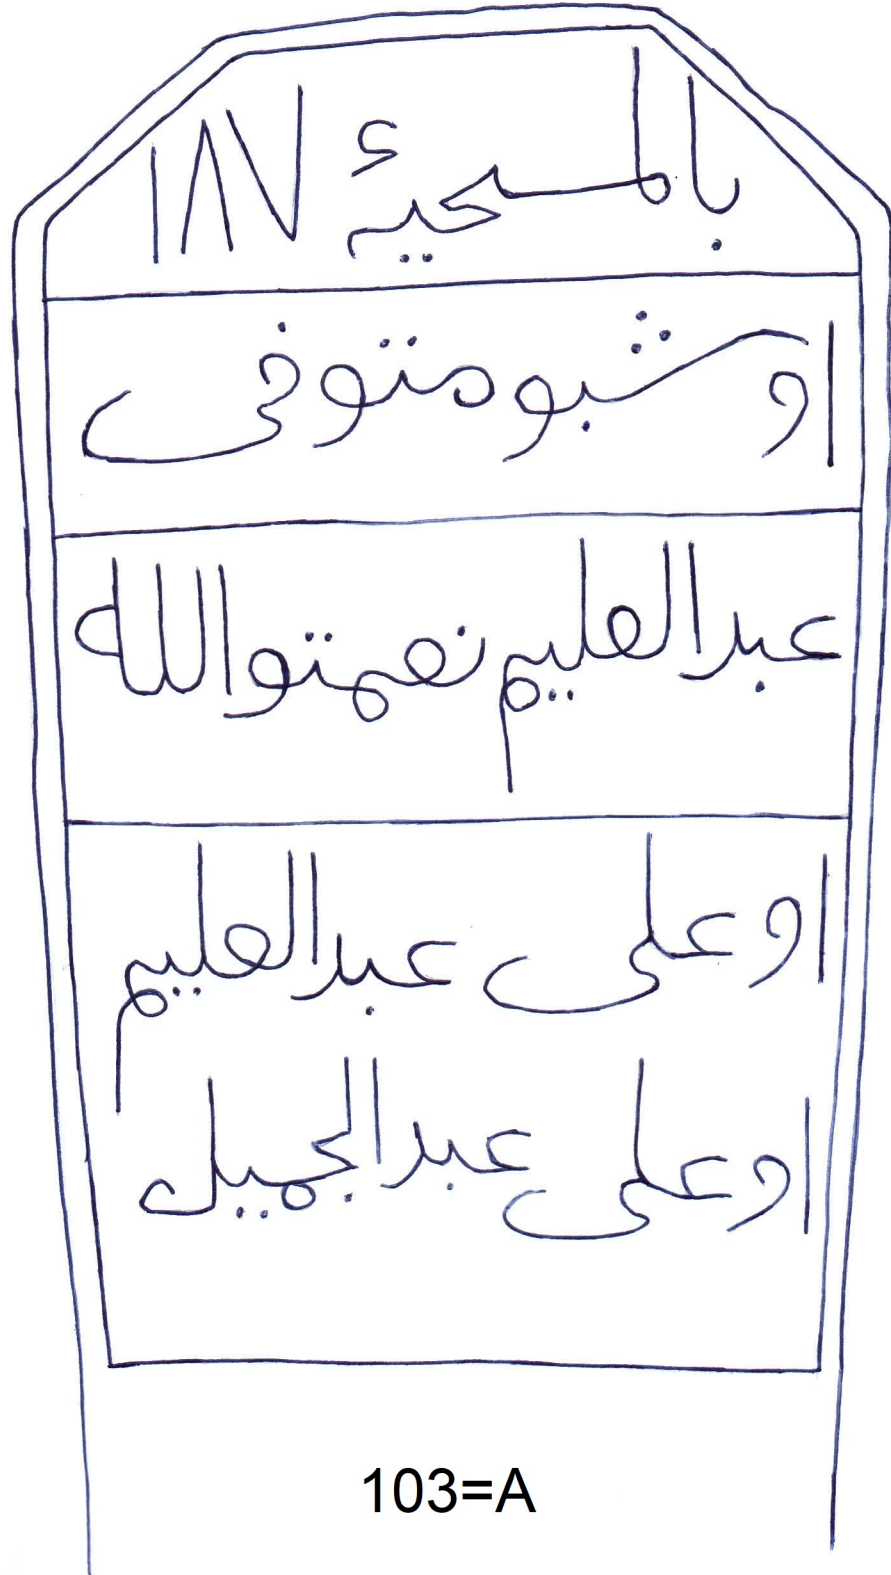 بالمسحيۀ ١٨٧
اوشبو متوفى
عبدالعليم نعمتوالله
اوعلى عبدالعليم
اوعلى عبدالجميل
103=A